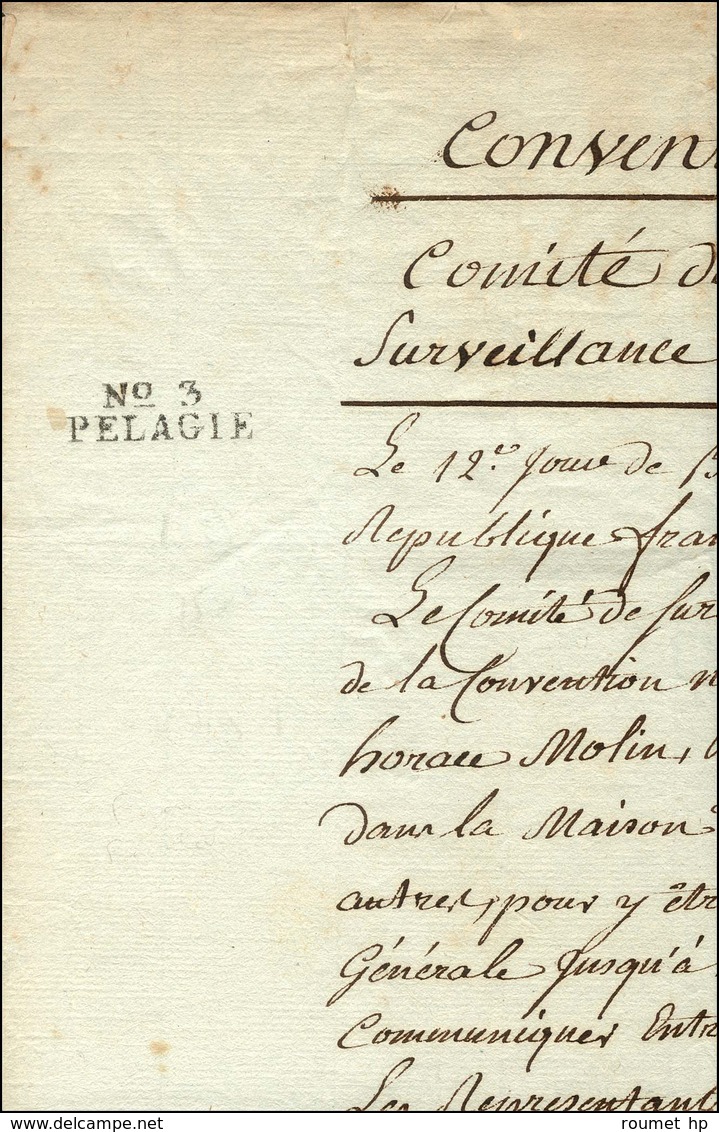 Conven
Comité d
Surveillance
No 3
PELAGIE
Le 12.e Jour de
Republique fran
Le Comité de Sur
de la Convention n
horace Molin,
dans la Maison
autres, pour y êtr
Générale Jusqu'à
Communiquer Entr
Les Representant
roumet hp